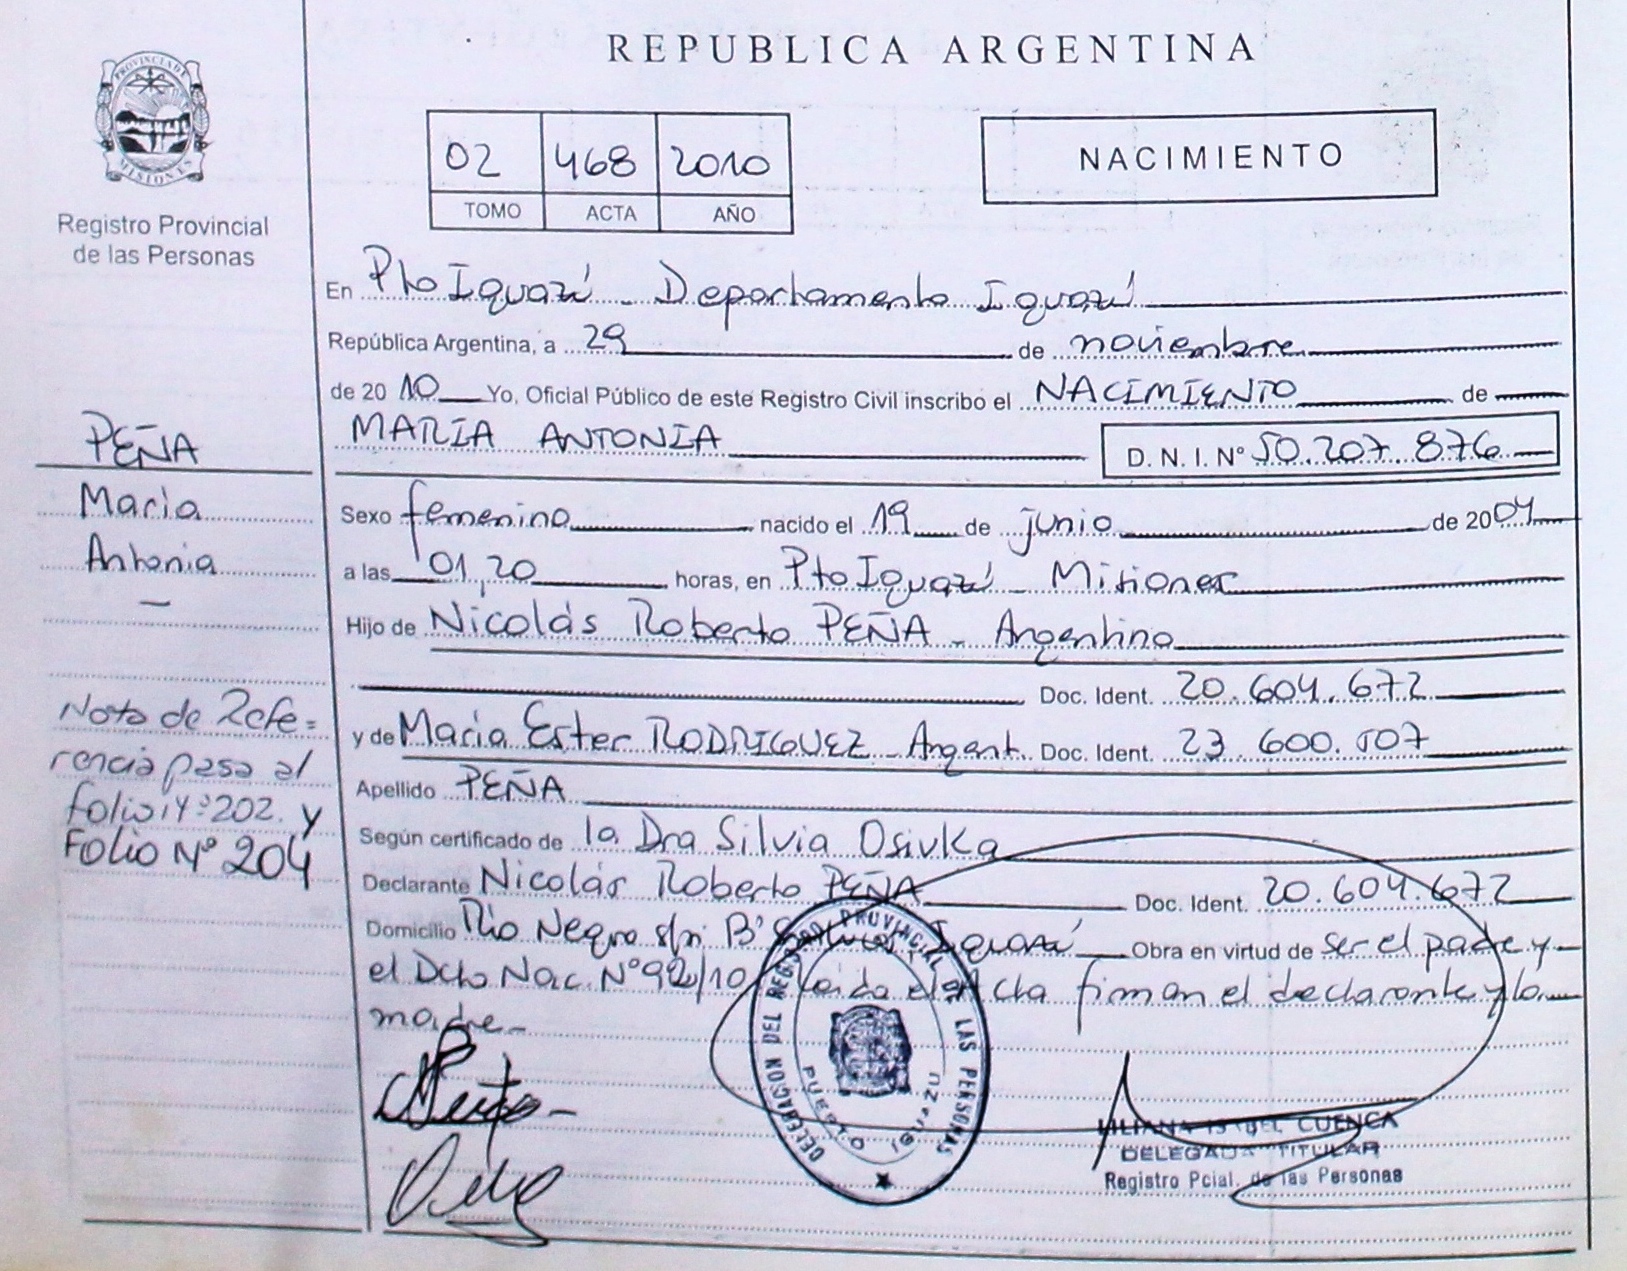 REPUBLICA ARGENTINA
PROVINCIA DE MISIONES
Registro Provincial
de las Personas
02 468 2010
TOMO ACTA AÑO
NACIMIENTO
En Pto Iguazú - Departamento Iguazú
República Argentina, a 29 de noviembre
de 2010 Yo, Oficial Público de este Registro Civil inscribo el NACIMIENTO de
MARIA ANTONIA D. N. I. Nº 50.207.876
PEÑA
Maria
Antonia
-
Sexo femenino nacido el 19 de junio de 2004
a las 01,20 horas, en Pto Iguazú - Misiones
Hijo de Nicolás Roberto PEÑA - Argentino
Doc. Ident. 20.604.672
y de Maria Ester RODRIGUEZ - Argent. Doc. Ident. 23.600.507
Apellido PEÑA
Según certificado de la Dra Silvia Osivka
Declarante Nicolás Roberto PEÑA Doc. Ident. 20.604.672
Domicilio Río Negro s/n Bº Iguazú Obra en virtud de ser el padre y
el Dcto Nac. Nº 92/10 Leida el Acta firman el declarante y la
madre -
Nota de Refe=
rencia pasa al
folio Nº 202. y
Folio Nº 204
DELEGACION DEL REGISTRO PROVINCIAL DE LAS PERSONAS
PUERTO IGUAZU
LILIANA ISABEL CUENCA
DELEGADA TITULAR
Registro Pcial. de las Personas